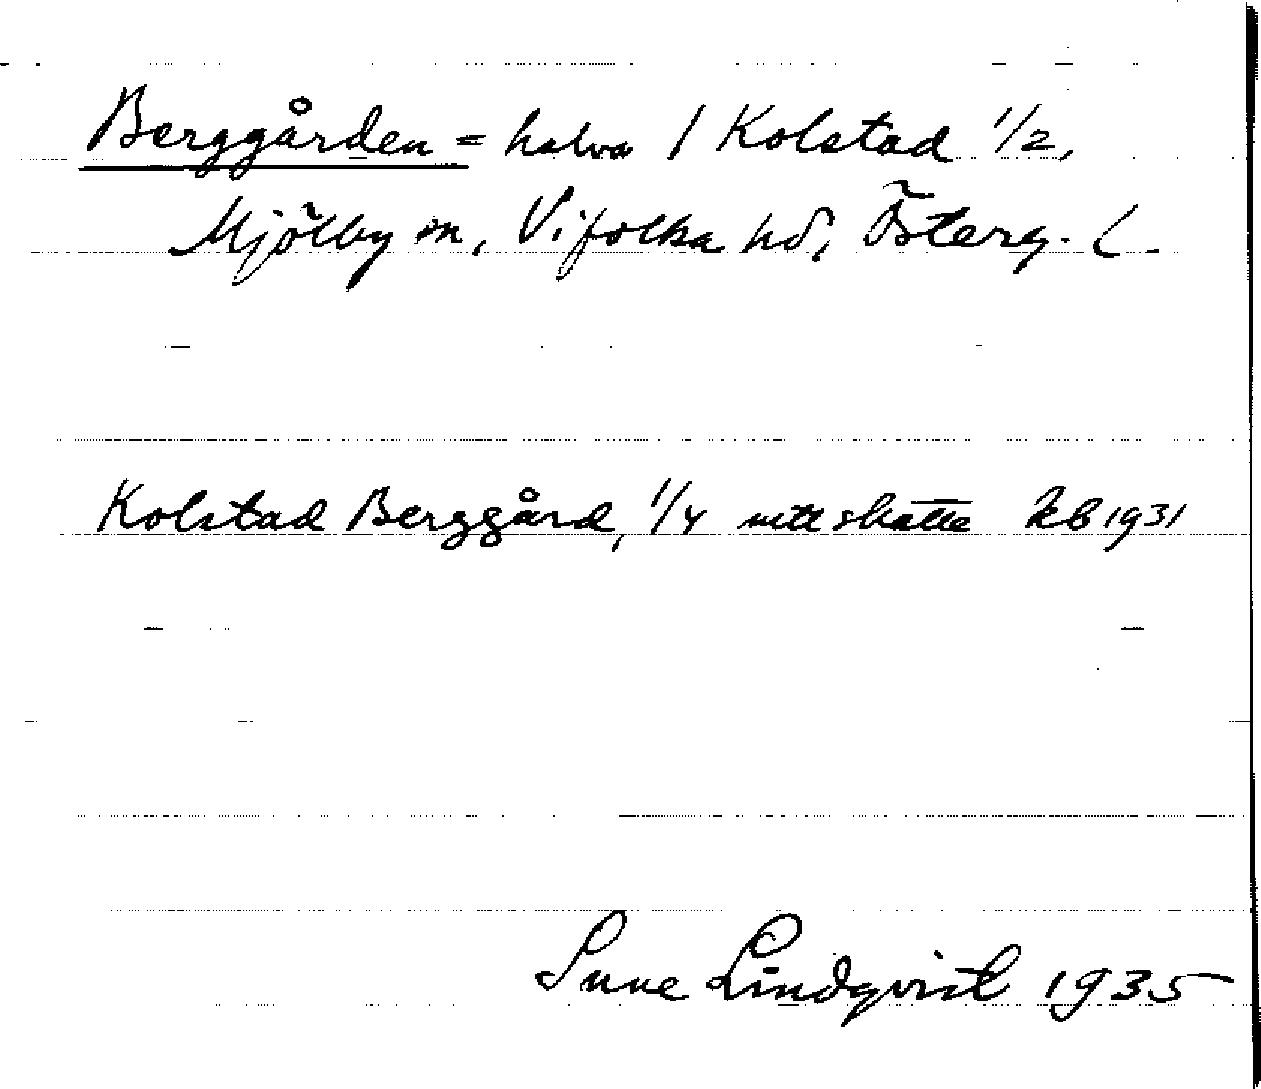 Berggården = halva 1 Kolstad 1/2,
Mjölby sn, Vifolka hd, Österg. L.
Kolstad Berggård, 1/4 mtl skatte kb 1931
Sune Lindqvist 1935